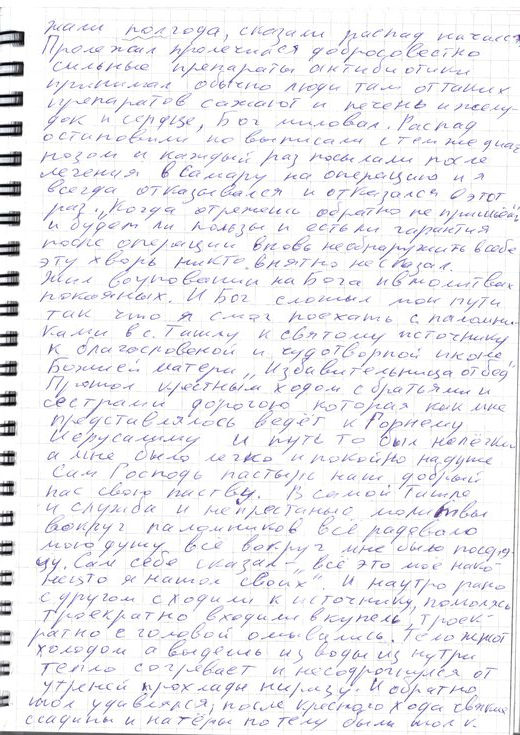 жали полгода, сказали распад начался
Пролежал пролечился добросовестно
сильные препараты антибиотики
принимал обычно люди там от таких
препаратов сажают и печень и желу-
док и сердце, Бог миловал. Распад
остановили но выписали с тем же диаг
нозом и каждый раз посылали после
лечения в Самару на операцию и я
всегда отказывался и отказался в этот
раз. „Когда отрежешь обратно не пришьёшь"
и будет ли польза и есть ли гарантия
после операции вновь не обнаружить в себе
эту хворь никто внятно не сказал.
Жил в уповании на Бога и в молитвах
покаянных. И Бог сложил мои пути
так что я смог поехать с паломни-
ками в с. Ташлу к святому источнику
к благословеной и чудотворной иконе
Божией матери „Избавительница от бед"
Прошол крестным ходом с братьями и
сестрами дорогою которая как мне
представлялось ведёт к Горнему
Иерусалиму и путь то был нелёгки
а мне было легко и покойно на душе
Сам Господь пастырь наш добрый
пас свою паству. В самой Ташле
и служба и непрестаные молитвы
вокруг паломников всё радовало
мою душу всё вокруг мне было по серд-
цу. Сам себе сказал - „всё это моё нако-
нец то я нашол своих". И наутро рано
с другом сходили к источнику, помолясь
троекратно входили в купель, троек-
ратно с головой омывались. Тело жгот
холодом а выдешь из воды из нутри
тепло согревает и не содрогнулся от
утреней прохлады ни разу. И обратно
шол удивлялся, после кресного хода свежие
ссадины и натёры по телу были шол к